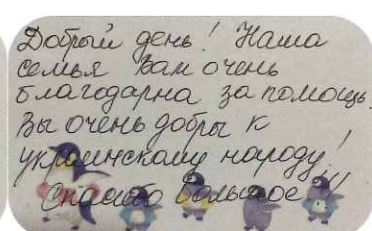 Добрый день! Наша
семья вам очень
благодарна за помощь.
Вы очень добры к
украинскому народу!
Спасибо большое!!!